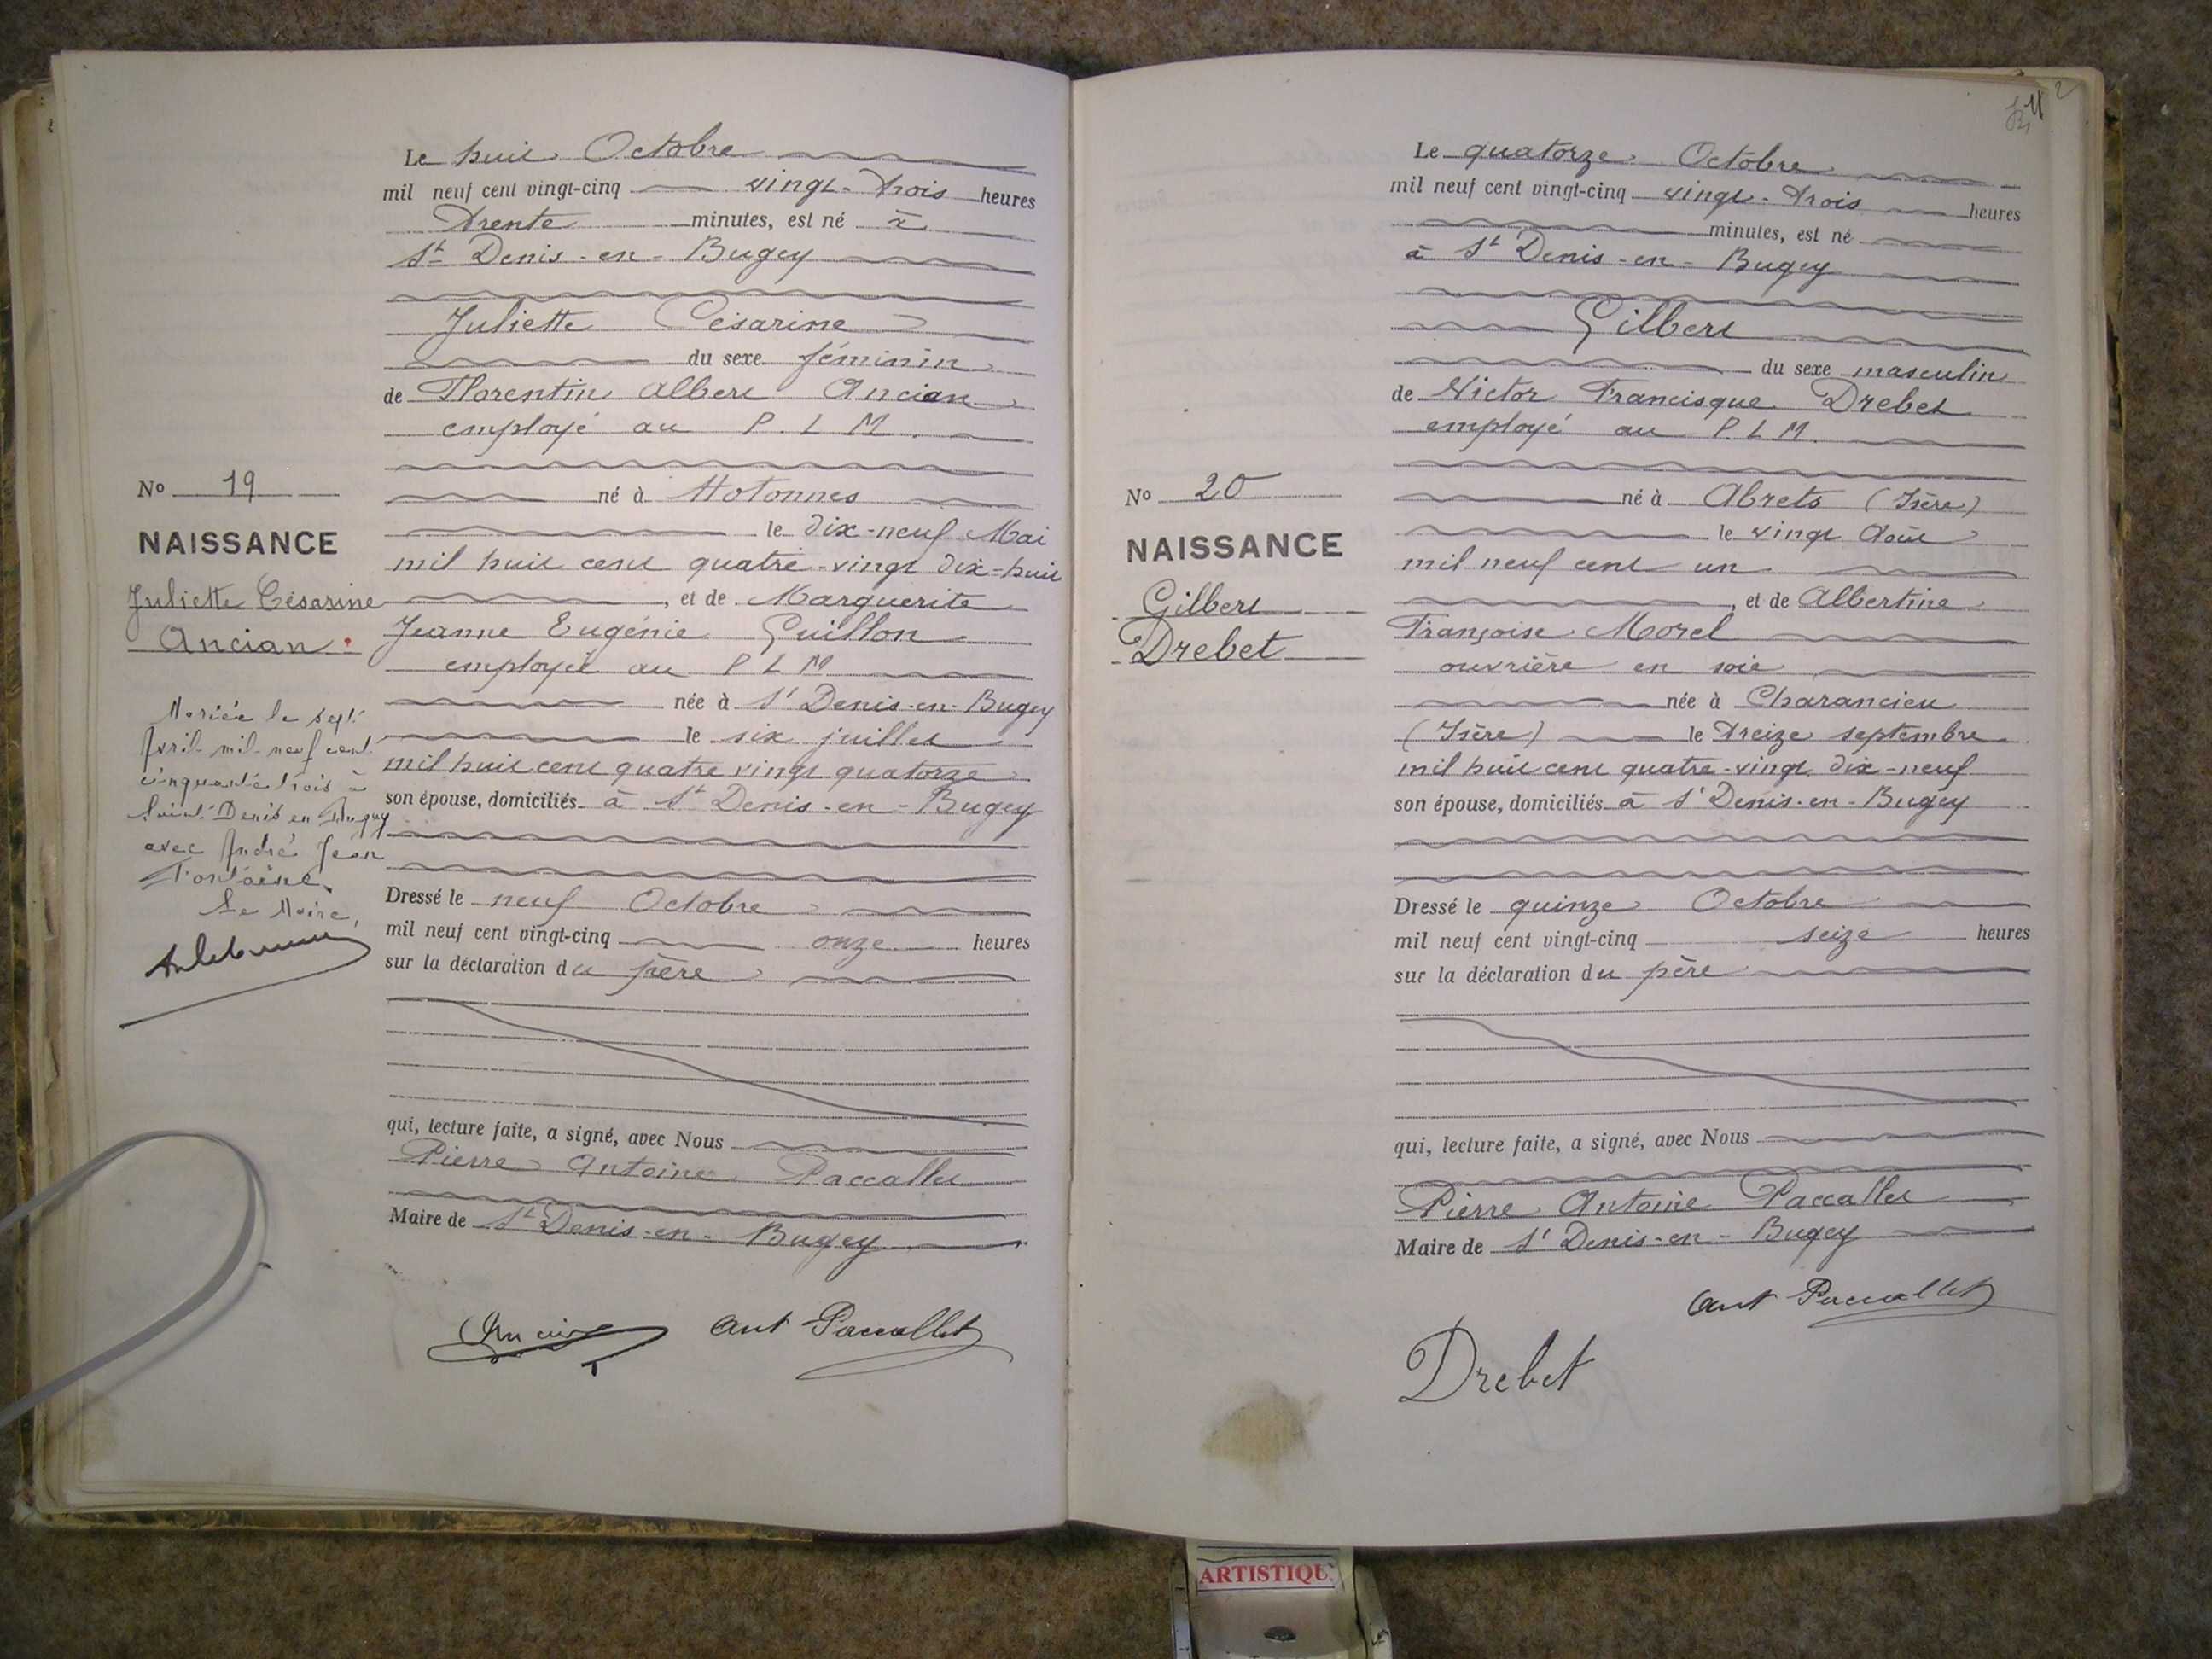 Le huit Octobre
mil neuf cent vingt-cinq vingt-trois heures
trente minutes, est né à
St Denis-en-Bugey
Juliette Césarine
du sexe féminin
de Florentin Albert Ancian
employé au P.L.M.
né à Hotonnes
le dix-neuf Mai
mil huit cent quatre-vingt dix-huit
, et de Marguerite
Jeanne Eugénie Guillon
employée au P L M
née à St Denis-en-Bugey
le six juillet
mil huit cent quatre vingt quatorze
son épouse, domiciliés à St Denis-en-Bugey
Dressé le neuf Octobre
mil neuf cent vingt-cinq onze heures
sur la déclaration du père
qui, lecture faite, a signé, avec Nous
Pierre Antoine Paccallet
Maire de St Denis-en-Bugey
Ant Paccallet
No 19
NAISSANCE
Juliette Césarine
Ancian
Mariée le sept
Avril mil neuf cent
cinquante trois à
Saint Denis en Bugey
avec André Jean
Le Maire,
2
Le quatorze Octobre
mil neuf cent vingt-cinq vingt-trois heures
minutes, est né
à St Denis-en-Bugey
Gilbert
du sexe masculin
de Victor Francisque Drebet
employé au P.L.M.
né à Abrets (Isère)
le vingt Août
mil neuf cent un
, et de Albertine
Françoise Morel
ouvrière en soie
née à Charancieu
(Isère) le treize septembre
mil huit cent quatre-vingt dix-neuf
son épouse, domiciliés à St Denis-en-Bugey
Dressé le quinze Octobre
mil neuf cent vingt-cinq seize heures
sur la déclaration du père
qui, lecture faite, a signé, avec Nous
Pierre Antoine Paccallet
Maire de St Denis-en-Bugey
Ant Paccallet
Drebet
No 20
NAISSANCE
Gilbert
Drebet
ARTISTIQU